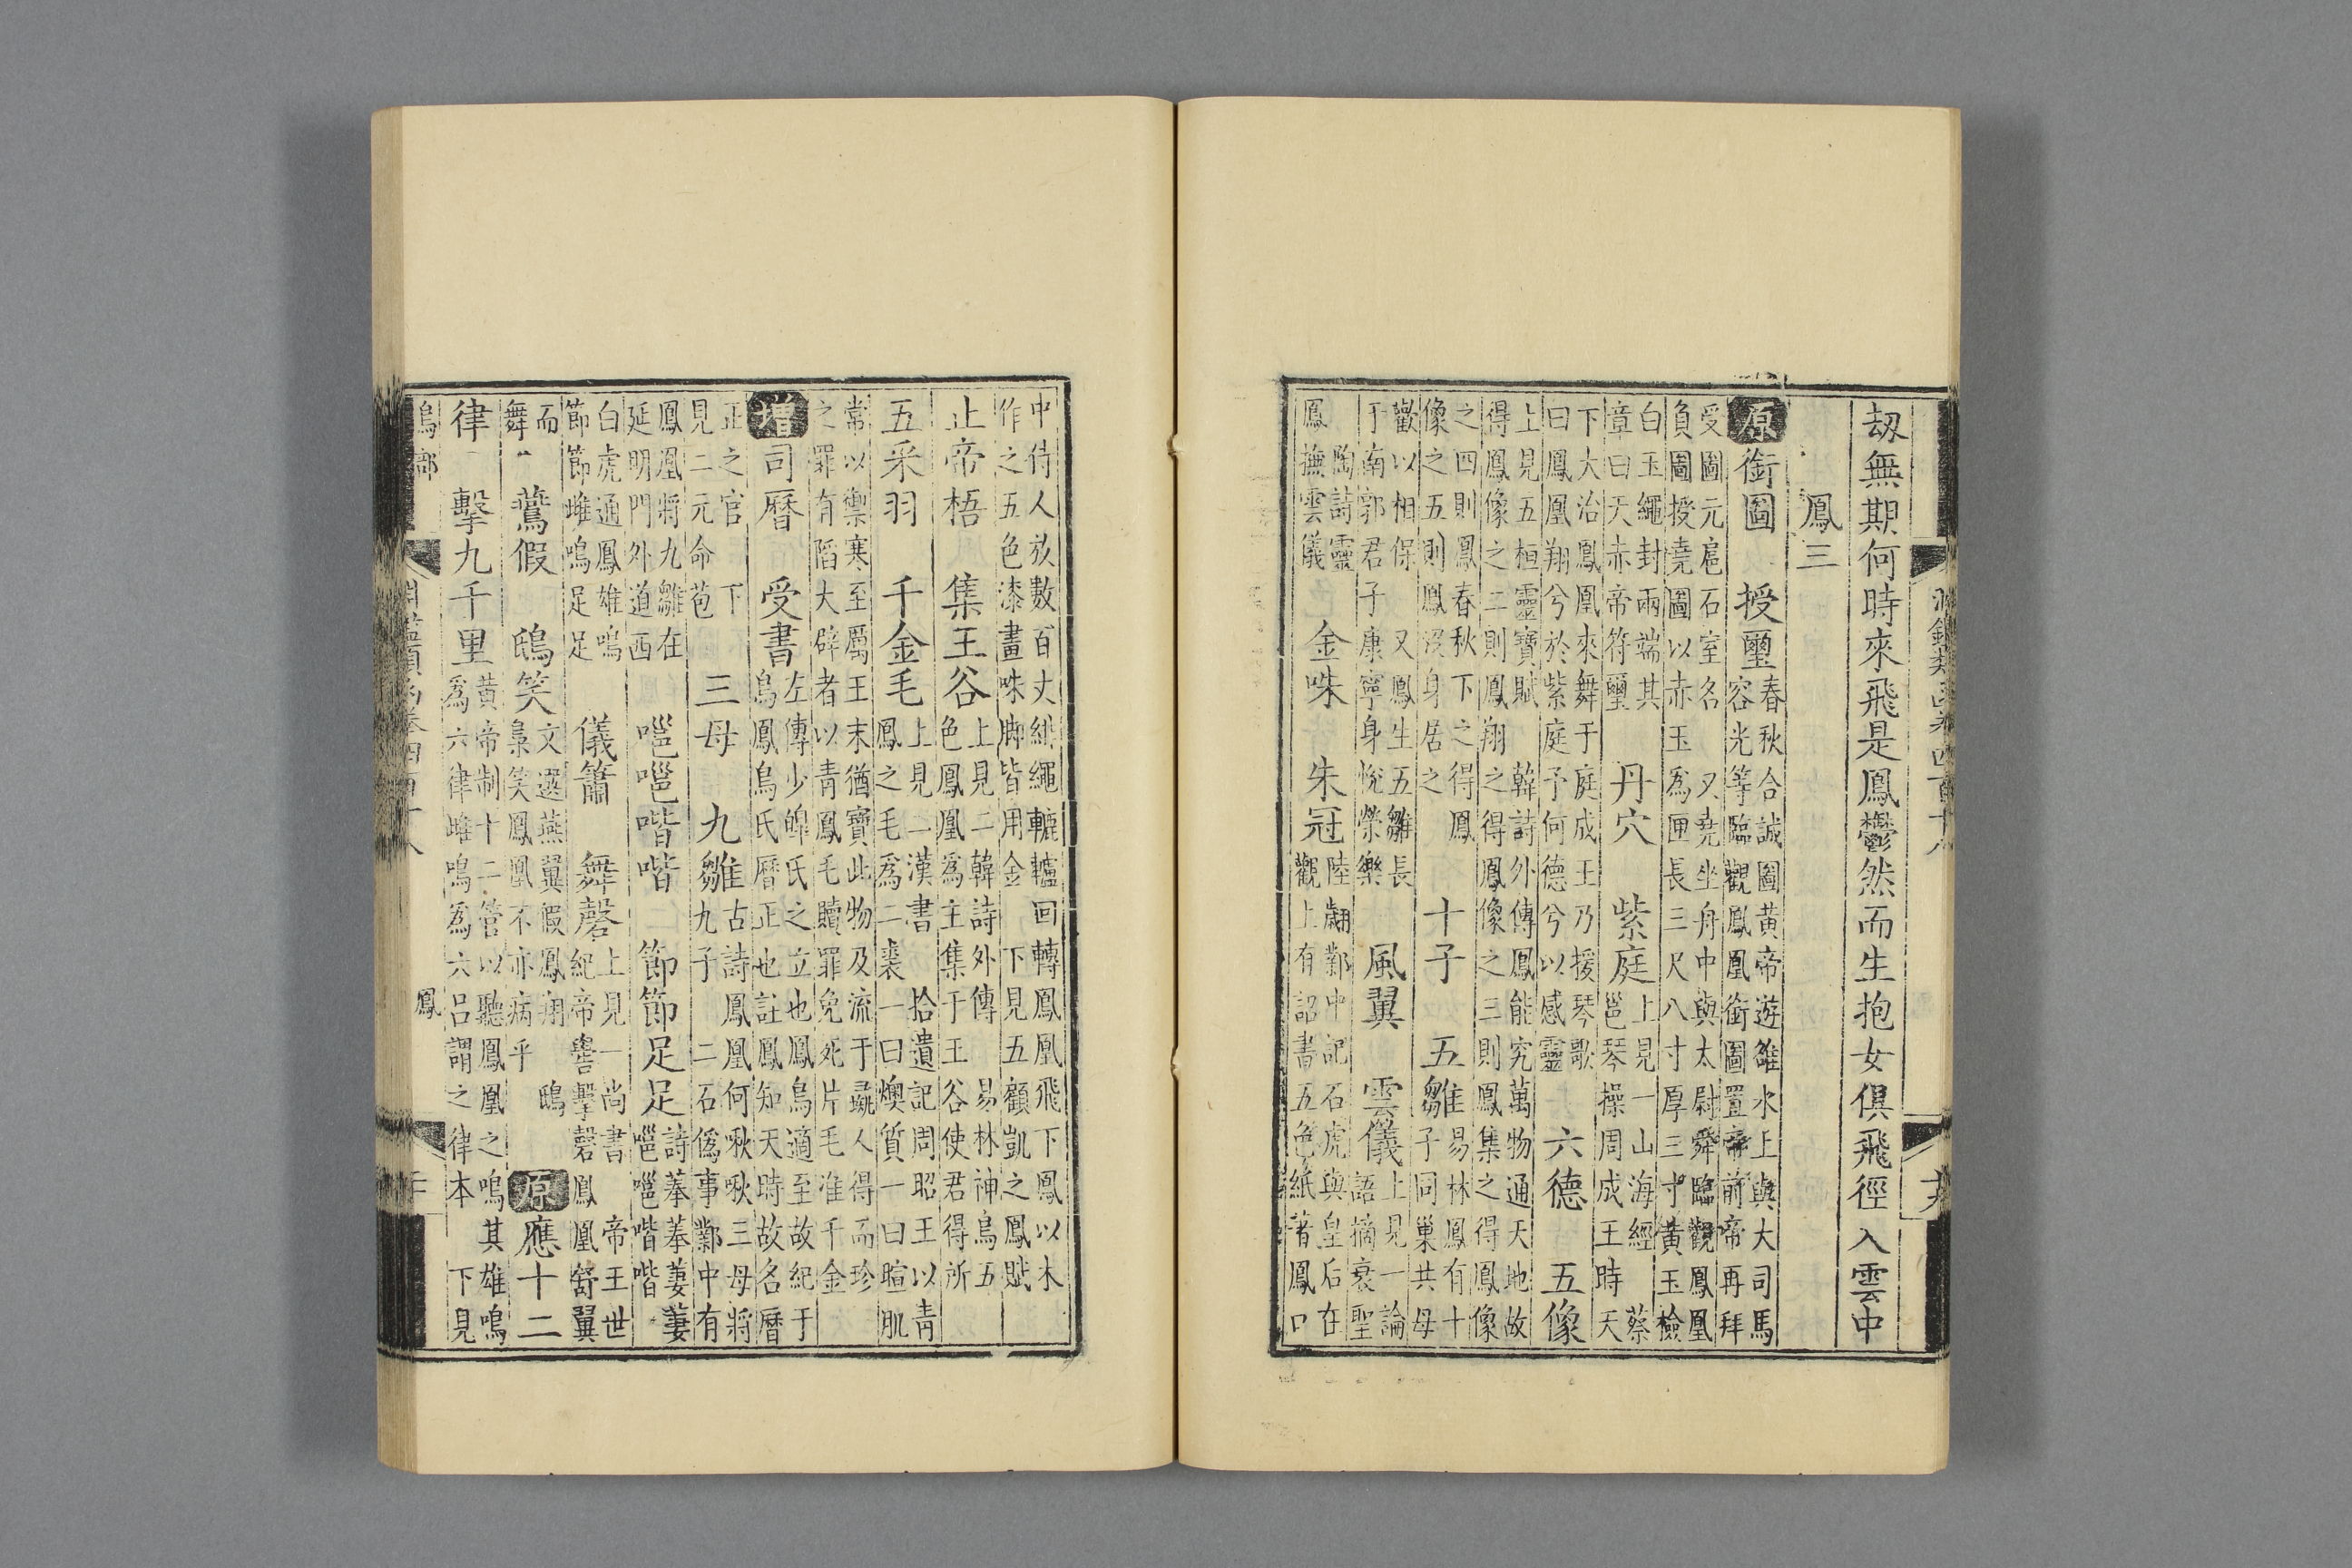 劫無期何時來飛是鳳鬱然而生抱女俱飛徑入雲中
鳳三
原銜圖 授璽春秋合誠圖黃帝遊雒水上與大司馬
容光等臨觀鳳凰銜圖置帝前帝再拜
受圖元扈石室名 又堯坐舟中與太尉舜臨觀鳳凰
負圖授堯圖以赤玉爲匣長三尺八寸厚三寸黃玉檢
白玉繩封兩端其
章曰天赤帝符璽
丹穴 紫庭上見一山海經 蔡
邕琴操周成王時天
下大治鳳凰來舞于庭成王乃援琴歌
曰鳳凰翔兮於紫庭予何德兮以感靈
六德 五像
上見五桓靈寶賦 韓詩外傳鳳能究萬物通天地故
得鳳像之二則鳳翔之得鳳像之三則鳳集之得鳳像
之四則鳳春秋下之得鳳
像之五則鳳沒身居之
十子 五雛易林鳳有十
子同巢共母
歡以相保 又鳳生五雛長
于南郭君子康寧身悅榮樂
風翼 雲儀上見一論
語摘衰聖
陶詩靈
鳳撫雲儀
金咮 朱冠陸翽鄴中記石虎與皇后在
觀上有詔書五色紙著鳳口
淵鑑類函卷四百十八
中侍人放數百丈緋繩轆轤回轉鳳凰飛下鳳以木
作之五色漆畫咮腳皆用金 下見五顧凱之鳳賦
止帝梧 集王谷上見二韓詩外傳 易林神烏五
色鳳凰爲主集于王谷使君得所
五采羽 千金毛上見二漢書 拾遺記周昭王以青
鳳之毛爲二裘一曰燠質一曰暄肌
常以禦寒至厲王末猶寶此物及流于彘人得而珍
之罪有陷大辟者以青鳳毛贖罪免死片毛准千金
增司曆 受書左傳少皥氏之立也鳳鳥適至故紀于
鳥鳳鳥氏曆正也註鳳知天時故名曆
正之官 下
見二元命苞
三母 九雛古詩鳳凰何啾啾三母將
九子 二石僞事鄴中有
鳳凰將九雛在
延明門外道西
嗈嗈喈喈 節節足足詩菶菶萋萋
嗈嗈喈喈
白虎通鳳雄鳴
節節雌鳴足足
儀簫 舞磬上見一尚書 帝王世
紀帝嚳擊磬鳳凰舒翼
而
舞
鷰假 鴟笑文選燕翼假鳳翔 鴟
梟笑鳳凰不亦病乎
原應十二
律 擊九千里黃帝制十二管以聽鳳凰之鳴其雄鳴
爲六律雌鳴爲六呂謂之律本 下見
鳥部
鳳